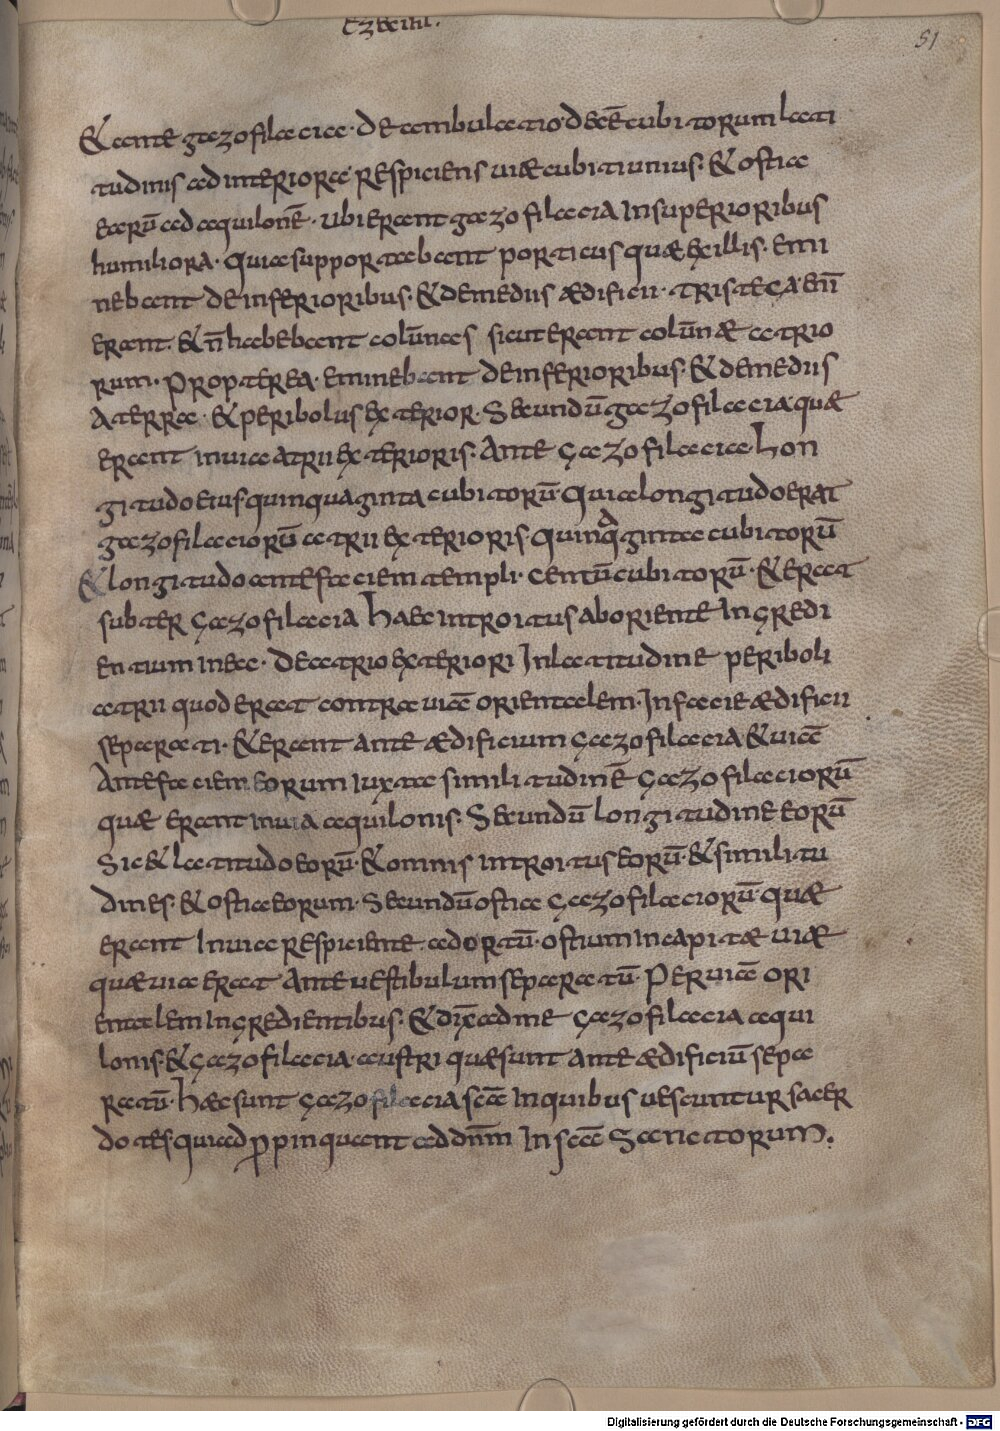 Ezechi.
51
& ante gazofilacia. deambulatio decē cubitorum lati
tudinis ad interiora respiciens uiæ cubiti unius. & ostia
earū ad aquilonē. ubi erant gazofilacia in superioribus
humiliora. quia supportabant porticus quæ ex illis. emi
nebant de inferioribus. & de mediis ædificii. tristega. eni
erant. & n̄ habebant colūnas sicut erant colūnæ atrio
rum. propterea. eminebant de inferioribus. & de mediis
a terra. & peribolus exterior. Secundū gazofilacia quæ
erant in uia atrii exterioris. Ante gazofilacia. Lon
gitudo eius quinquaginta cubitorū. Quia longitudo erat
gazofilaciorū atrii exterioris. quinquaginta cubitorū
& longitudo ante faciem templi. centū cubitorū. & erat
subter gazofilacia haec introitus ab oriente ingredi
entium in ea. de atrio exteriori In latitudine periboli
atrii quod erat contra uiā orientalem. In facie ædificii
separati. & erant ante ædificium gazofilacia & uiā
Ante faciem eorum iuxta similitudinē gazofilaciorū
quæ erant in uia aquilonis. Secundū longitudine eorū
Sic & latitudo eorū. & omnis introitus eorū. & simili tu
dines. & ostia eorum. Secundū ostia gazofilaciorū. quæ
erant In uia respiciente ad ortū. ostium in capitæ uiæ
quæ uia erat Ante uestibulum separatū. Per uiā ori
entalem ingredientibus. & dix̄ ad me gazofilacia aqui
lonis. & gazofilacia. austri quæ sunt ante ædificiū sepa
ratū. Hæc sunt gazofilacia scā In quibus uescuntur sacer
dotes qui adpropinquant ad dn̄m In scā Sanctorum.
Digitalisierung gefördert durch die Deutsche Forschungsgemeinschaft - DFG